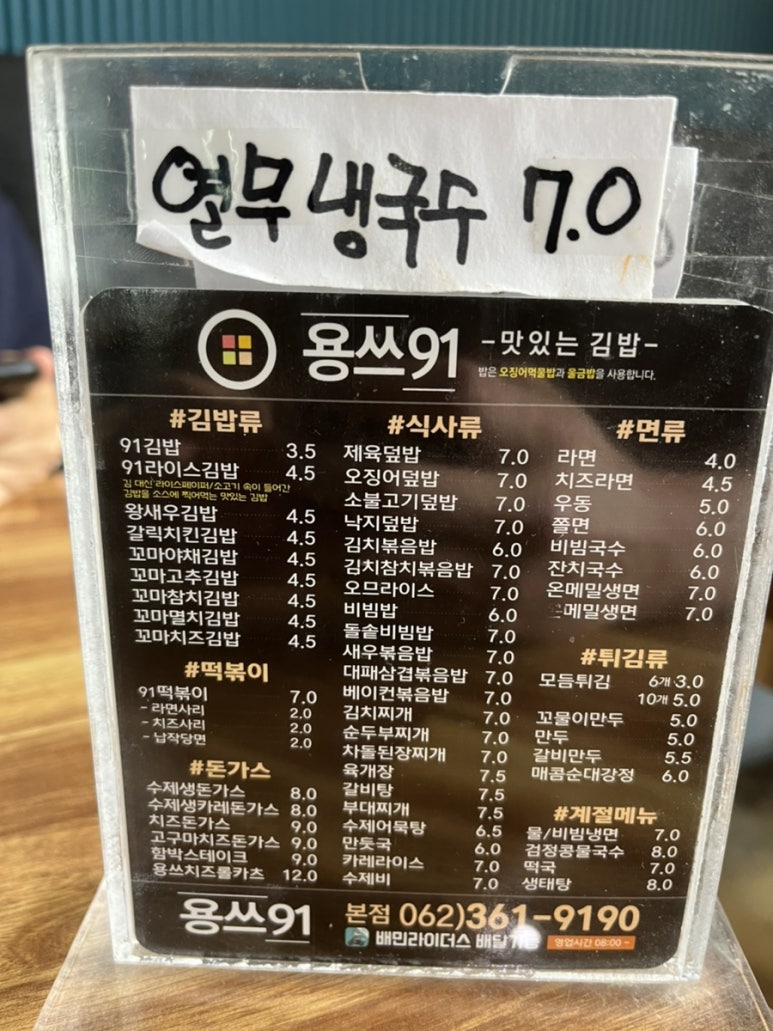 열무 냉국수 7.0
용쓰91 -맛있는 김밥-
밥은 오징어먹물밥과 울금밥을 사용합니다.
#김밥류
91김밥 3.5
91라이스김밥 4.5
김 대신 라이스페이퍼/소고기 속이 들어간
김밥을 소스에 찍어먹는 맛있는 김밥
왕새우김밥 4.5
갈릭치킨김밥 4.5
꼬마야채김밥 4.5
꼬마고추김밥 4.5
꼬마참치김밥 4.5
꼬마멸치김밥 4.5
꼬마치즈김밥 4.5
#떡볶이
91떡볶이 7.0
- 라면사리 2.0
- 치즈사리 2.0
- 납작당면 2.0
#돈가스
수제생돈가스 8.0
수제생카레돈가스 8.0
치즈돈가스 9.0
고구마치즈돈가스 9.0
함박스테이크 9.0
용쓰치즈롤카츠 12.0
#식사류
제육덮밥 7.0
오징어덮밥 7.0
소불고기덮밥 7.0
낙지덮밥 7.0
김치볶음밥 6.0
김치참치볶음밥 7.0
오므라이스 7.0
비빔밥 6.0
돌솥비빔밥 7.0
새우볶음밥 7.0
대패삼겹볶음밥 7.0
베이컨볶음밥 7.0
김치찌개 7.0
순두부찌개 7.0
차돌된장찌개 7.0
육개장 7.5
갈비탕 7.5
부대찌개 7.5
수제어묵탕 6.5
만둣국 6.0
카레라이스 7.0
수제비 7.0
#면류
라면 4.0
치즈라면 4.5
우동 5.0
쫄면 6.0
비빔국수 6.0
잔치국수 6.0
온메밀생면 7.0
메밀생면 7.0
#튀김류
모듬튀김 6개 3.0
10개 5.0
꼬물이만두 5.0
만두 5.0
갈비만두 5.5
매콤순대강정 6.0
#계절메뉴
물/비빔냉면 7.0
검정콩물국수 8.0
떡국 7.0
생태탕 8.0
용쓰91 본점 062)361-9190
배민라이더스 배달가능 영업시간 08:00 ~